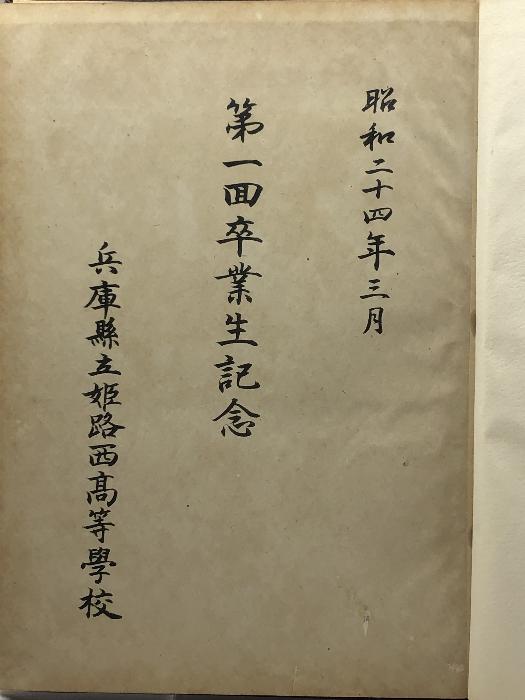 昭和二十四年三月
第一回卒業生記念
兵庫縣立姫路西髙等學校